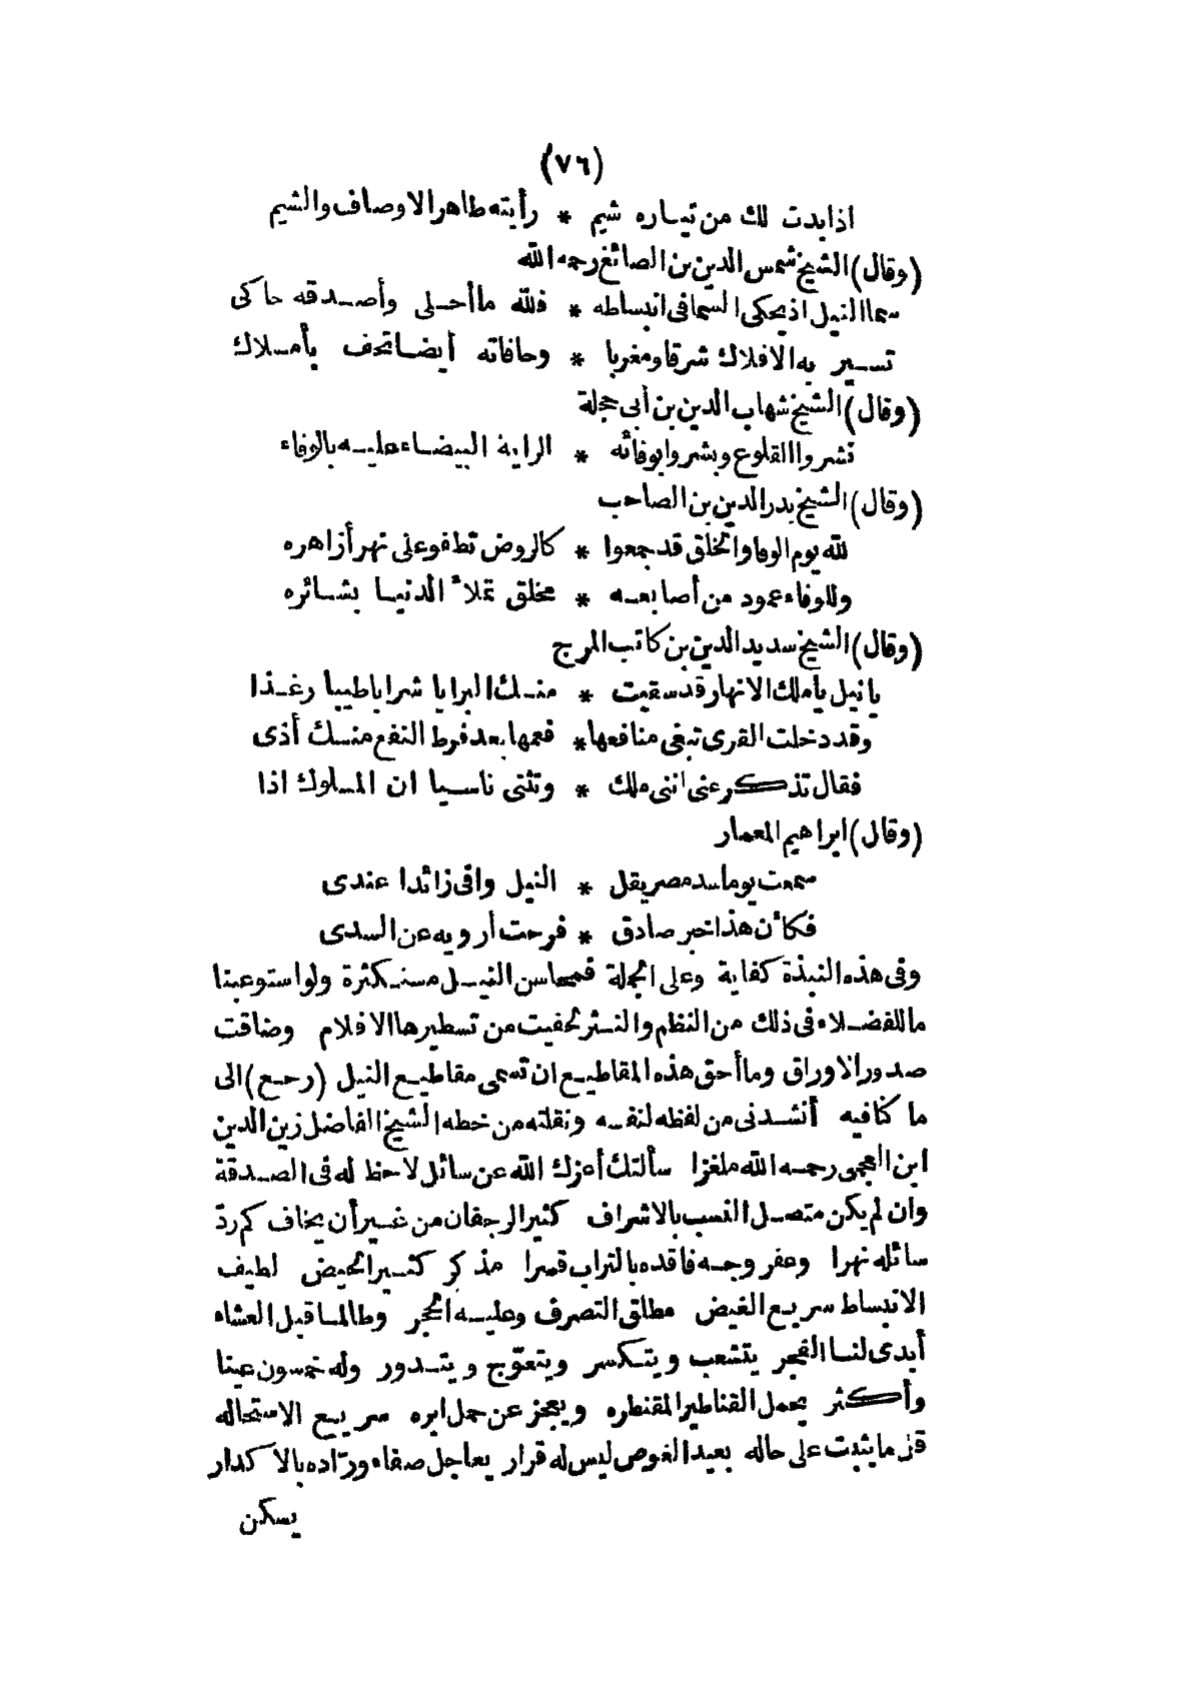 (٧٦)
اذا بدت لك من تياره شيم * رأيته طاهر الاوصاف والشيم
(وقال) الشيخ شمس الدين بن الصائغ رحمه الله
سما النيل اذ يحكى السما فى انبساطه * فلله ما أحلى وأصدقه حاكى
تسير به الافلاك شرقا ومغربا * وحافاته أيضا تحف بأملاك
(وقال) الشيخ شهاب الدين بن أبى حجلة
نشروا القلوع وبشروا بوفائه * الراية البيضاء عليه بالوفاء
(وقال) الشيخ بدر الدين بن الصاحب
لله يوم الوفا والخلق قد جمعوا * كالروض تطفو على نهر أزاهره
وللوفاء عمود من أصابعه * مخلق تملأ الدنيا بشائره
(وقال) الشيخ سديد الدين بن كاتب المرج
يا نيل يا ملك الانهار قد سقيت * منك البرايا شرابا طيبا رغذا
وقد دخلت القرى تبغى منافعها * فعمها بعد فرط النفع منك أذى
فقال تذكر عنى اننى ملك * وتنثنى ناسيا ان الملوك اذا
(وقال) ابراهيم المعمار
سمعت يوما سد مصر يقل * النيل وافى زائدا عندى
فكأن هذا خبر صادق * فرحت أرويه عن السدى
وفى هذه النبذة كفاية وعلى الجملة فمحاسن النيل مستكثرة ولو استوعبنا
ما للفضلاء فى ذلك من النظم والنثر لحفيت من تسطيرها الاقلام وضاقت
صدور الاوراق وما أحق هذه المقاطيع ان تسمى مقاطيع النيل (رجع) الى
ما كنا فيه أنشدنى من لفظه لنفسه ونقلته من خطه الشيخ الفاضل زين الدين
ابن العجمى رحمه الله ملغزا سألتك أعزك الله عن سائل لا حظ له فى الصدقة
وان لم يكن متصل النسب بالاشراف كثير الرجفان من غير أن يخاف كم ردّ
سائله نهرا وعفر وجه فاقده بالتراب قسرا مذكر كثير الحيض لطيف
الانبساط سريع الغيض مطلق التصرف وعليه الحجر وطالما قبل العشاء
أبدى لنا الفجر يتشعب ويتكسر ويتعوّج ويتدور وله خمسون عينا
وأكثر يحمل القناطير المقنطره ويعجز عن حمل ابره سريع الاستحاله
قل ما يثبت على حاله بعيد الغوص ليس له قرار يعاجل صفاء ورّاده بالاكدار
يسكن